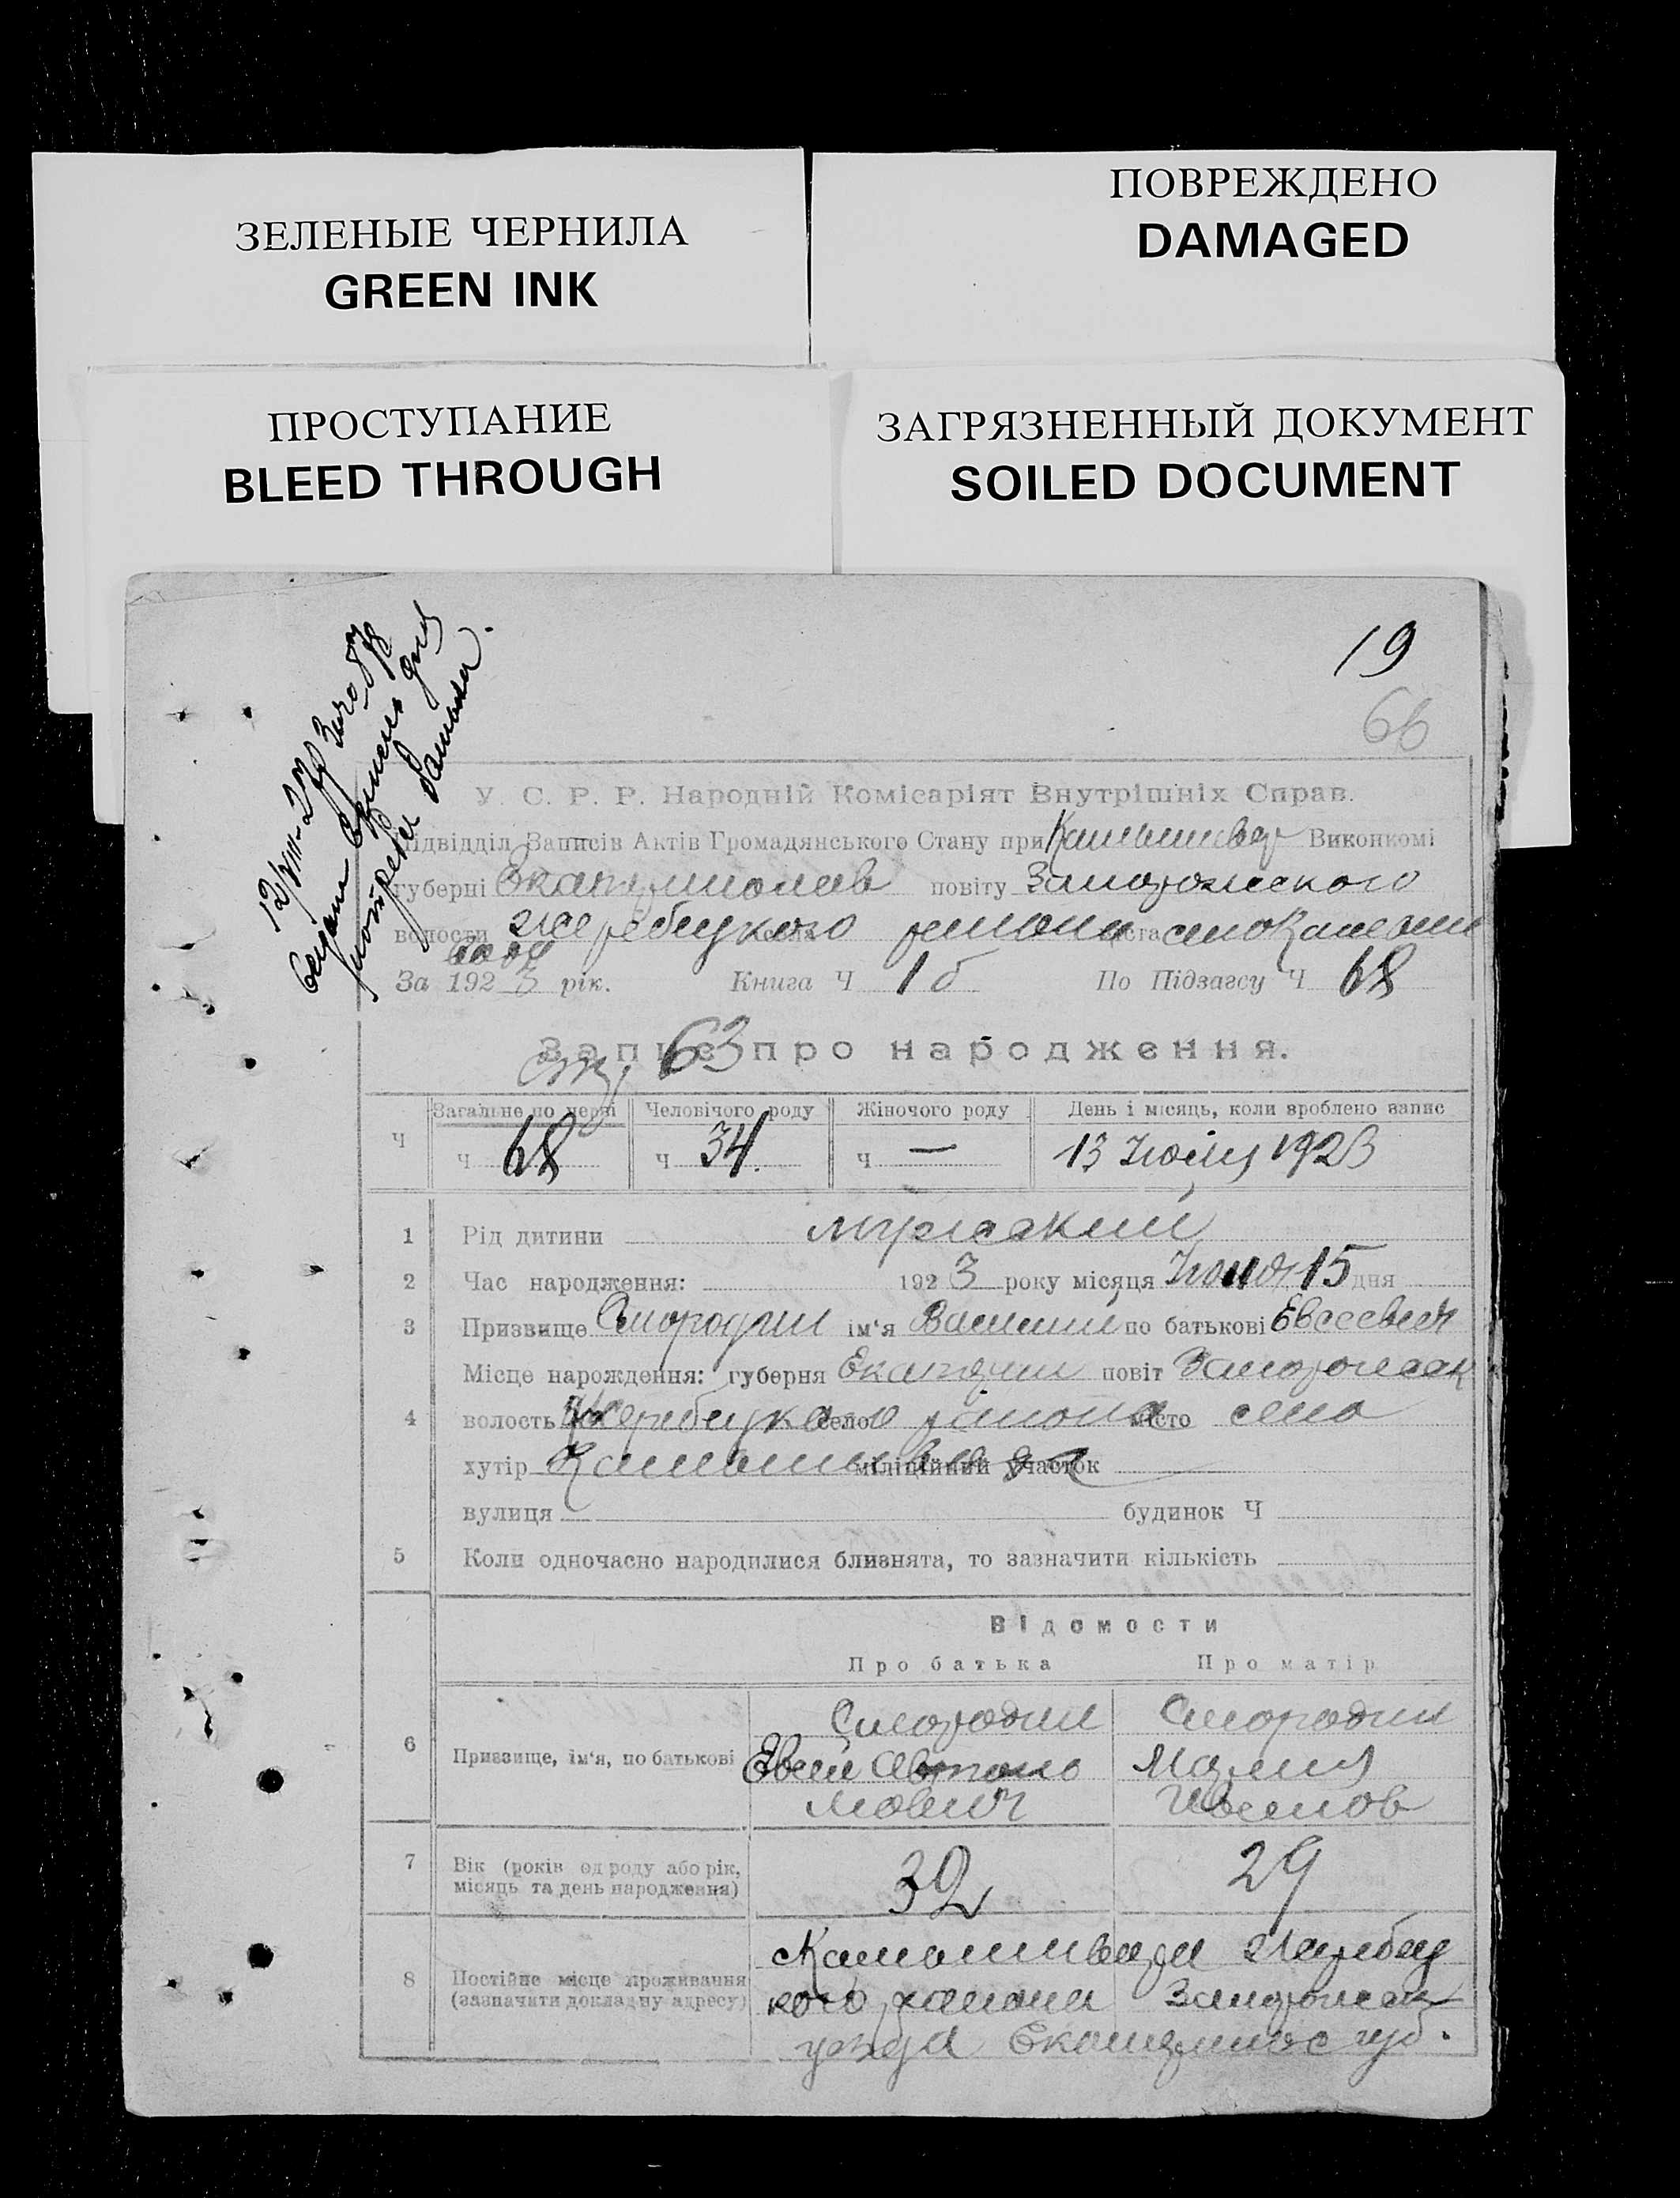 ЗЕЛЕНЫЕ ЧЕРНИЛА
GREEN INK
ПОВРЕЖДЕНО
DAMAGED
ПРОСТУПАНИЕ
BLEED THROUGH
ЗАГРЯЗНЕННЫЙ ДОКУМЕНТ
SOILED DOCUMENT
19
66
У. С. Р. Р. Народній Комісаріят Внутрішніх Справ.
Підвідділ Записів Актів Громадянського Стану при Виконкомі
губерні Екатеринослав повіту Запорожского
волости Жеребецкого района село
За 1923 рік. Книга Ч 1б По Підзагсу Ч 68
Запис про народження.
63
Загальне по черзі Человічого роду Жіночого роду День і місяць, коли вроблено запис
Ч Ч 68 Ч 34. Ч — 13 Июля 1923
1 Рід дитини мужский
2 Час народження: 1923 року місяця Июня 15 дня
3 Призвище Смородин ім'я Василий по батькові Евсеевич
Місце нарождення: губерня Екатерин повіт Запорожск
4 волость Жеребецкого село района місто село
хутір міліційний участок
вулиця будинок Ч
5 Коли одночасно народилися близнята, то зазначити кількість
Відомости
Про батька Про матір
6 Призвище, ім'я, по батькові
Смородин Смородин
Евсей Автоно Мария
мович
7 Вік (років од роду або рік, місяць та день народження) 32 29
8 Постійне місце проживання (зазначити докладну адресу)
Жеребец
кого района Запорожск
уезда Екатеринос губ.